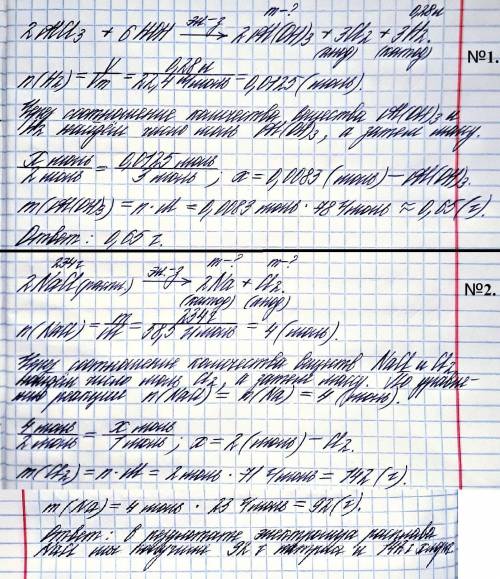 m-? 0,28л
2AlCl₃ + 6HOH эл-з → 2Al(OH)₃ + 3Cl₂ + 3H₂.
(анод) (катод)
№1.
n(H₂) = V/Vm = 0,28 л/22,4 л/моль = 0,0125 (моль).
Через соотношение количества вещества Al(OH)₃ и
H₂ найдём число моль Al(OH)₃, а затем массу.
x моль/2 моль = 0,0125 моль/3 моль; x = 0,0083 (моль) – Al(OH)₃.
m(Al(OH)₃) = n · M = 0,0083 моль · 78 г/моль ≈ 0,65 (г).
Ответ: 0,65 г.
234г m-? m-?
2NaCl(распл.) эл.-з → 2Na + Cl₂.
(катод) (анод)
№2.
n(NaCl) = m/M = 234г/58,5 г/моль = 4 (моль).
Через соотношение количества веществ NaCl и Cl₂
найдём число моль Cl₂, а затем массу. По уравне-
нию реакции n(NaCl) = n(Na) = 4 (моль).
4 моль/2 моль = x моль/1 моль; x = 2 (моль) – Cl₂.
m(Cl₂) = n · M = 2 моль · 71 г/моль = 142 (г).
m(Na) = 4 моль · 23 г/моль = 92 (г).
Ответ: в результате электролиза расплава
NaCl мы получили 92 г натрия и 142 г хлора